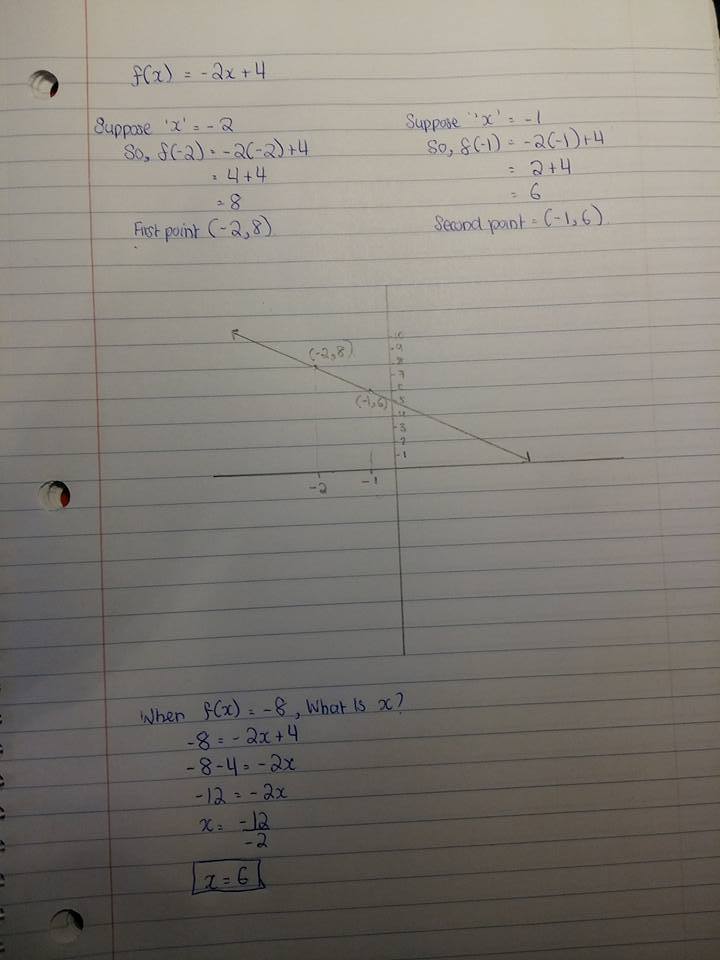 f(x) = -2x+4
Suppose 'x' = -2
So, f(-2) = -2(-2)+4
= 4+4
= 8
First point (-2,8)
Suppose 'x' = -1
So, f(-1) = -2(-1)+4
= 2+4
= 6
Second point = (-1,6)
10
9
(-2,8)
8
7
6
(-1,6)
5
4
3
2
1
-2
-1
When f(x) = -8, What Is x?
-8 = -2x+4
-8-4 = -2x
-12 = -2x
x = -12
-2
x = 6